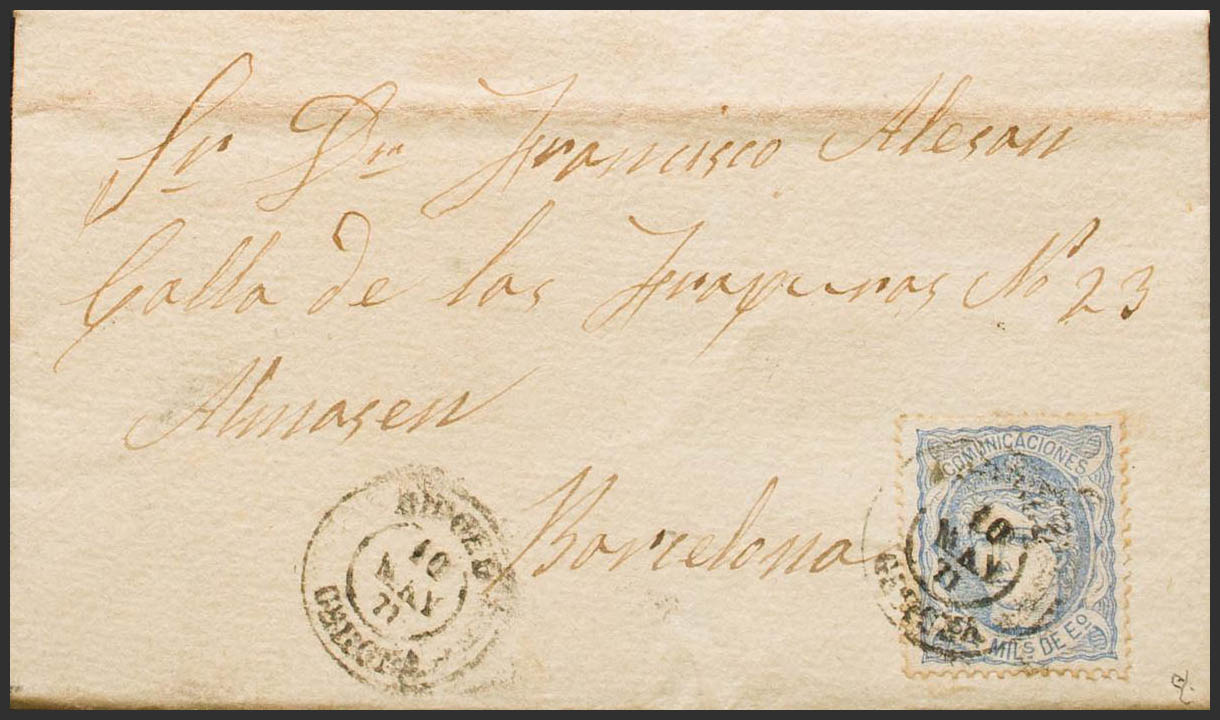 Sr Dn Francisco Alesan
Calla de las Frapuras No 23
Almasen
Barcelona
10
MAY
71
GERONA
COMUNICACIONES
10
MAY
71
GERONA
MILS DE Eº.